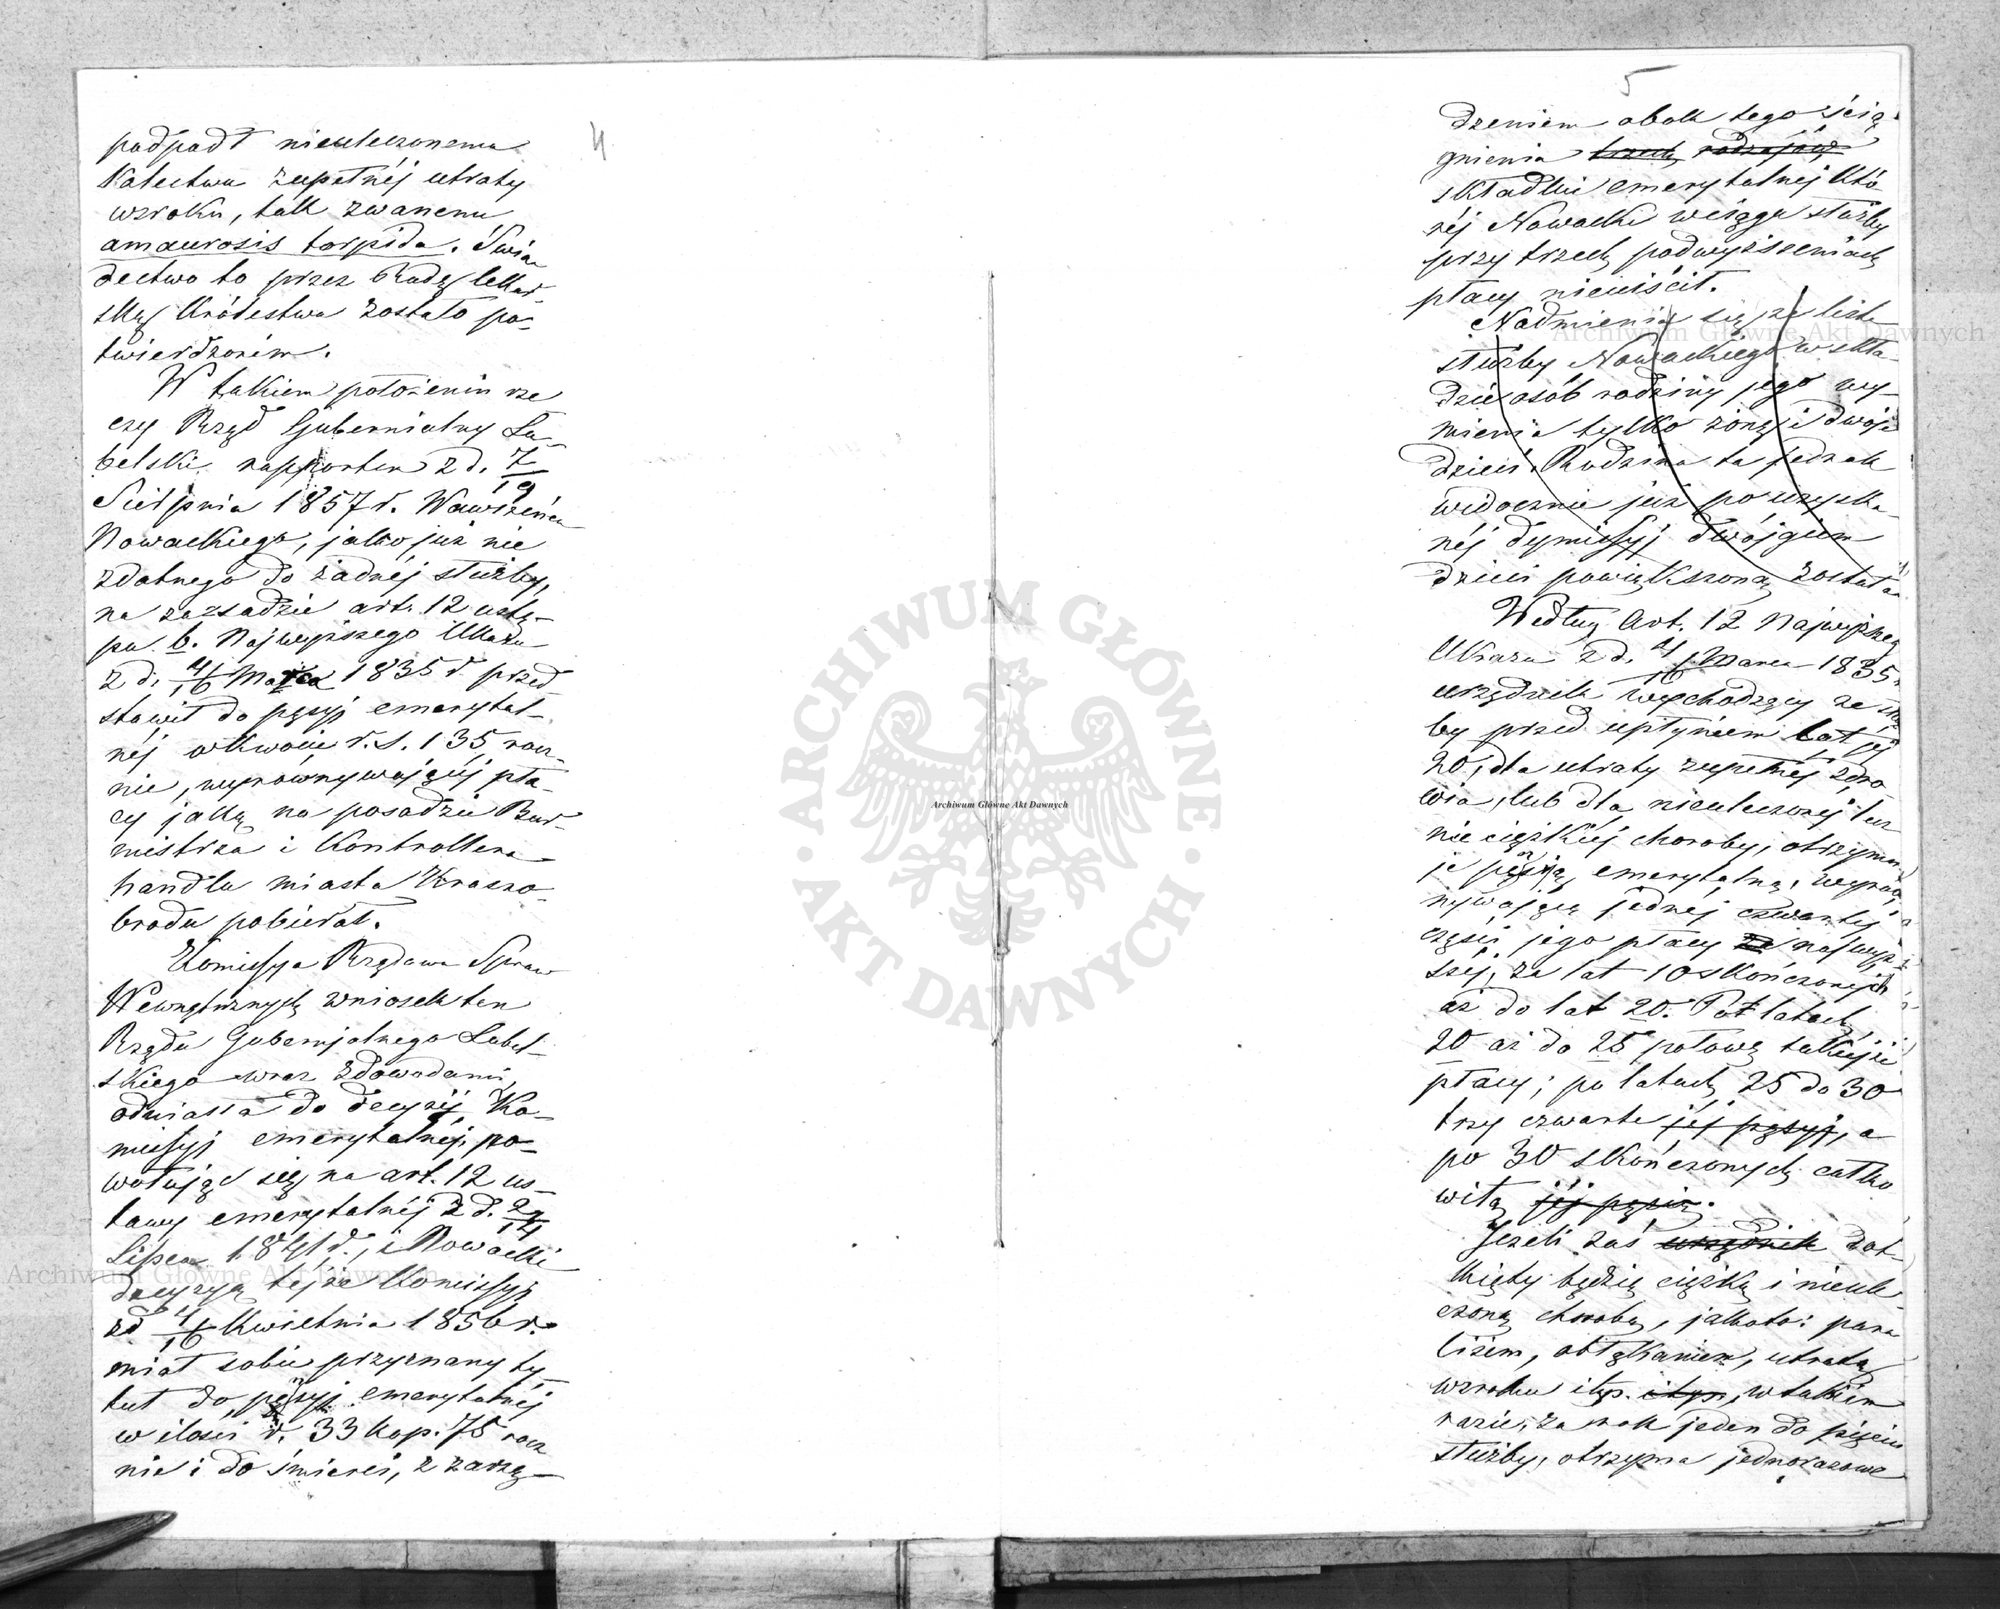 4
podpadł nieuleczonemu
Kalectwu zupełnéj utraty
wzroku, tak zwanemu
amaurosis torpida. Świa-
dectwo to przez Radę lekar-
ską Królestwa zostało po-
twierdzoném.
W takiem położeniu rze
czy Rząd Gubernialny Lu-
belski rapportem z d. 7/19
Sierpnia 1857 r. Wawrzeńca
Nowackiego, jako już nie
zdatnego do żadnéj służby,
na zazsadzie art. 12 ustę-
pu b. Najwyższego Ukazu
z d. 4/16 Marca 1835 r. przed
stawił do pęsyi emerytal-
néj w kwocie r. s. 135 rocz-
nie, wyrównywającéj pła-
cy jaką na posadzie Bur-
mistrza i Kontrollera
handlu miasta Kraszo-
brodu pobierał.
Kommissya Rządowa Spraw
Wewnętrznych wniosek ten
Rządu Gubernjalnego Lubel-
skiego wraz z dowodami
odniosła do decyzij Ko-
missyj emerytalnéj, po-
wołując się na art. 12 us-
tawy emerytalnéj z d. 2/14
Lipca 1841 r., i Nowacki
decyzyą tejże Komissyj
z d 4/16 Kwietnia 1856 r.
miał sobie przyznany ty
tuł do pęsyj emerytalnéj
w ilości r. 33 kop. 75 rocz
nie i do śmierci, z zarzą-
5
dzeniem obok tego ścią-
gnienia trzech rodzajów
składki emerytalnéj któ-
réj Nowacki w ciągu służby
przy trzech podwyższeniach
płacy nieuiścił.
Nadmienia się że lista
służby Nowackiego w skła-
dzie osób rodziny jego wy-
mienia tylko żonę i dwoje
dzieci. Rodzina ta jednak
widocznie już po uzyska-
néj dymissyj dwójgiem
dzieci powiększoną została
Według Art. 12 Najwyższeg
Ukazu z d. 4/16 Marca 1835 r.
urzędnik wychodzący ze służ
by przed upłynieniem lat jéj
20, dla utraty zupełnéj zdro-
wia, lub dla nieuleczonej lecz
nie ciężkiéj choroby, otrzymu
je pęsją emerytalną, wyrów
nywającą jednéj czwartéj
części jego płacy za najwyż
széj, za lat 10 skończonych
aż do lat 20. Po latach
20 aż do 25 połowę takiejże
płacy; po latach 25 do 30
trzy czwarte jéj pęsyj, a
po 30 skończonych całko
witą jéj pęsią.
Jeżeli zaś urzędnik dot-
knięty będzie ciężką i nieule-
czoną chorobą, jakoto: para
liżem, obłąkaniem, utratą
wzroku itp. itym, w takim
razie, za rok jeden do pięciu
służby, otrzyma jednorazowe
ARCHIWUM GŁÓWNE AKT DAWNYCH
Archiwum Główne Akt Dawnych
Archiwum Główne Akt Dawnych
Archiwum Główne Akt Dawnych